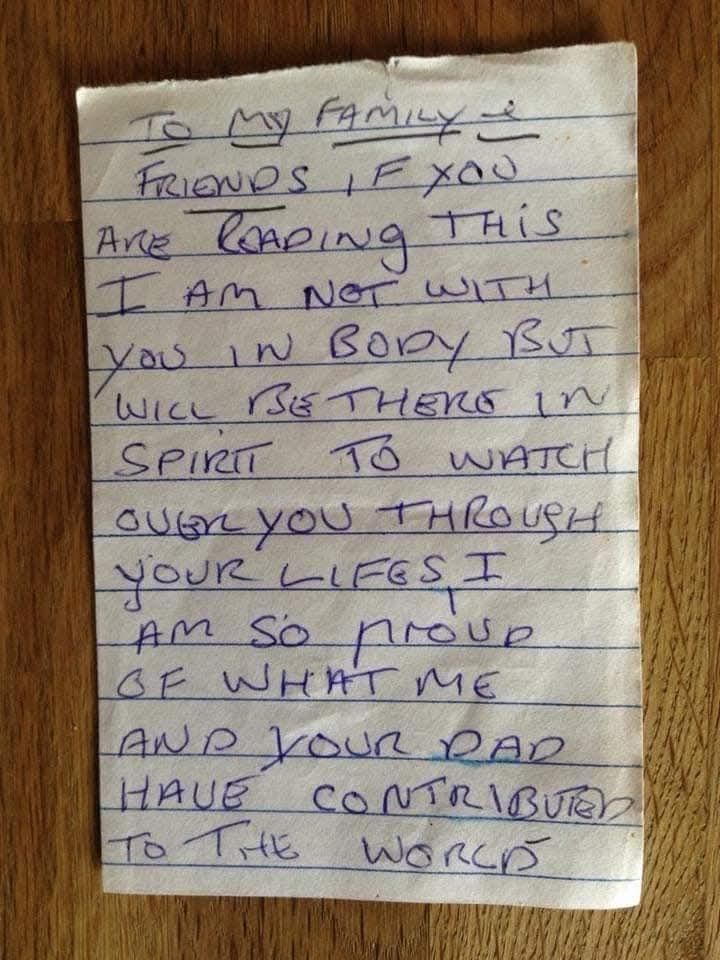 TO MY FAMILY &
FRIENDS, IF YOU
ARE READING THIS
I AM NOT WITH
YOU IN BODY BUT
WILL BE THERE IN
SPIRIT TO WATCH
OVER YOU THROUGH
YOUR LIFES, I
AM SO PROUD
OF WHAT ME
AND YOUR DAD
HAVE CONTRIBUTED
TO THE WORLD